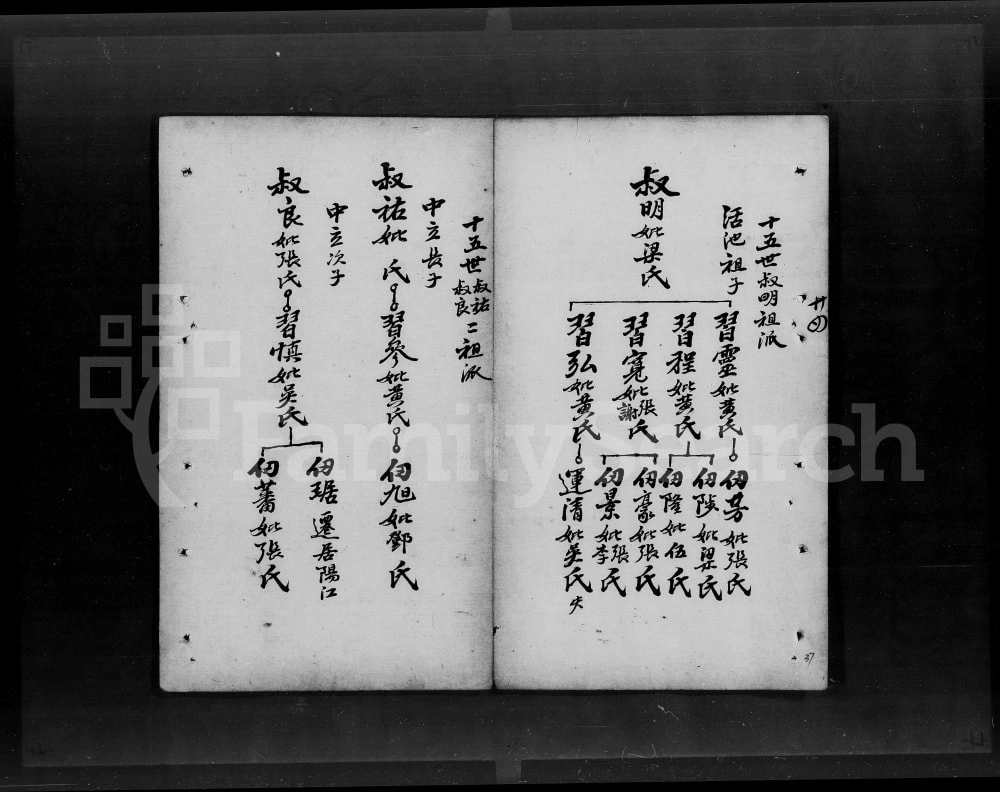 十五世叔明祖派
廿四
活池祖子
叔明妣梁氏
習靈妣黃氏
習程妣黃氏
習寬妣張謝氏
習弘妣黃氏
仞芳妣張氏
仞陟妣梁氏
仞隆妣伍氏
仞豪妣張氏
仞景妣張李氏
運清妣吳氏 失
37
十五世叔祐叔良二祖派
中立長子
叔祐妣 氏
習參妣黃氏
仞旭妣鄧氏
中立次子
叔良妣張氏
習慎妣吳氏
仞琚 遷居陽江
仞蕃妣張氏
FamilySearch